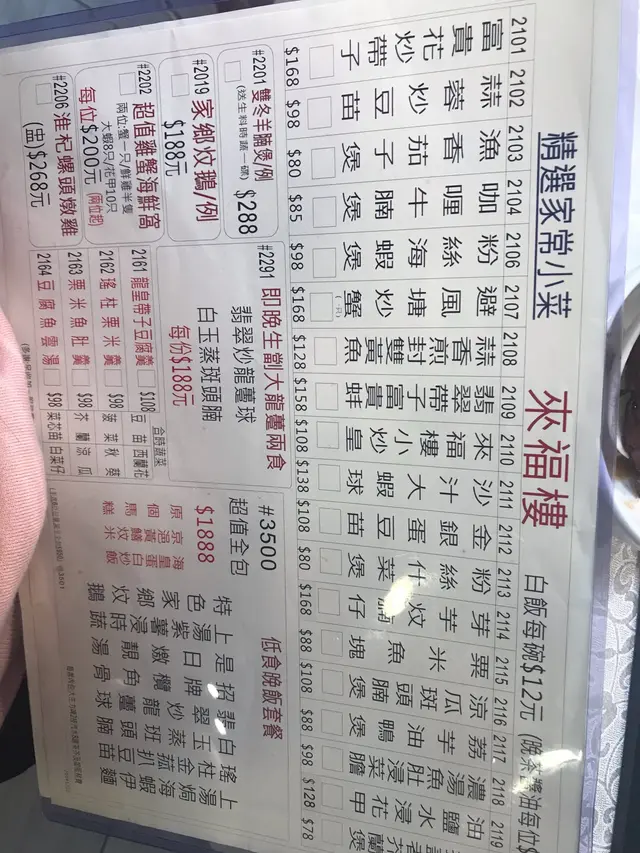 精選家常小菜
來福樓
白飯每碗$12元 (晚茶醬油每位$
2101 富貴花炒帶子 $168
2102 蒜蓉炒豆苗 $98
2103 漁香茄子煲 $80
2104 咖喱牛腩煲 $85
2106 粉絲海蝦煲 $98
2107 避風塘炒蟹(一只) $168
2108 蒜香煎封雙黃魚 $128
2109 翡翠帶子富貴蚌 $158
2110 來福樓小炒皇 $108
2111 沙汁大蝦球 $138
2112 金銀蛋豆苗 $108
2113 粉絲什菜煲 $80
2114 芽芋炆 仔 $168
2115 粟米魚塊 $88
2116 涼瓜斑頭腩煲 $108
2117 荔芋油鴨煲 $88
2118 濃湯魚浸菜膽 $98
2119 鹽水浸花甲 $128
油 芥蘭煲 $78
#2201 雙冬羊腩煲/例 $288
(送生料時蔬一碟)
#2019 家鄉炆鵝/例
$188元
#2202 超值雞蟹海鮮窩
兩位:蟹一只/鮮雞半隻
大蝦8只/花甲10只
每位$200元(兩位起)
#2206 淮杞螺頭燉雞
(盅)$268元
#2291 即晚生劏大龍躉兩食
翡翠炒龍躉球
白玉蒸斑頭腩
每份$188元
2161 龍皇帶子豆腐羹 $108
2162 瑤柱粟米羹 $98
2163 粟米魚肚羹 $98
2164 豆腐魚雲湯 $98
合時蔬菜
豆苗 西蘭花
菠菜 秋葵
芥蘭 涼瓜
菜芯苗 白菜仔
#3500
超值全包
$1888
低食晚飯套餐
上湯焗海蝦伊麵
瑤柱金菇扒豆苗
白玉蒸龍班頭腩
翡翠炒龍躉球
招牌欖角骨
是日燉靚湯
上湯紫薯浸時蔬
特色家鄉炆鵝
海皇蛋白炒飯